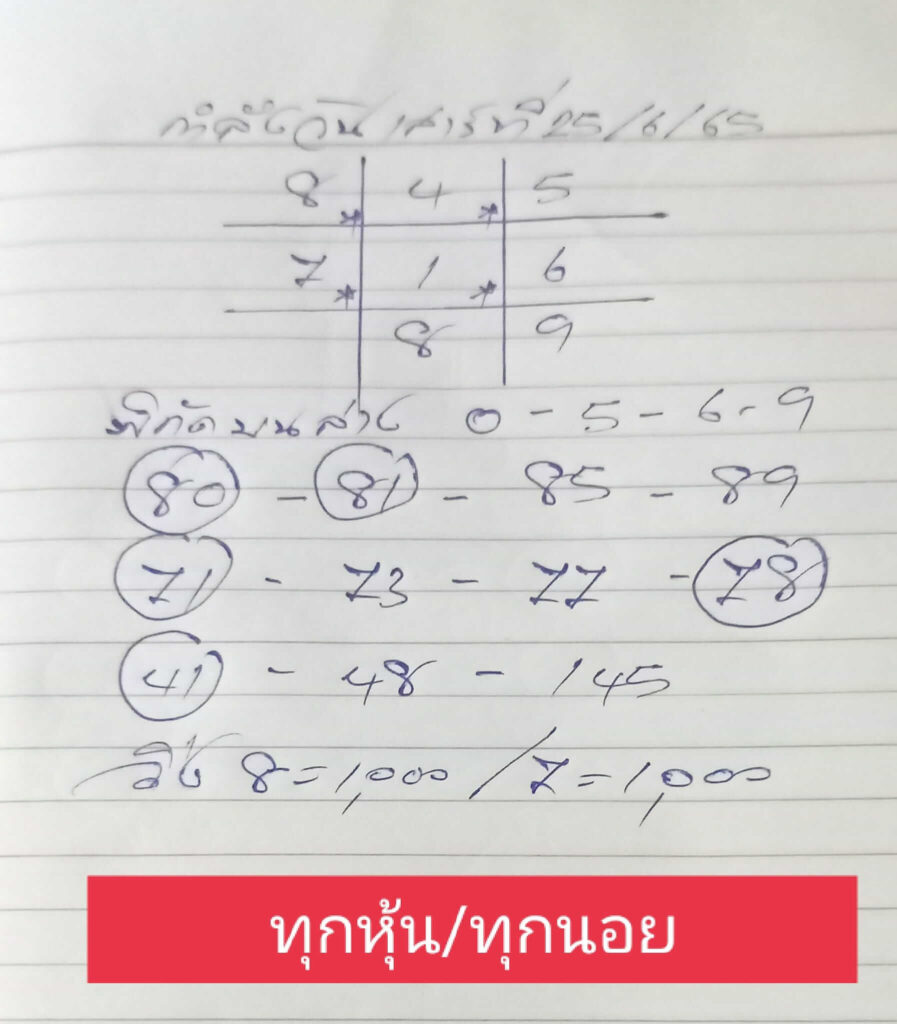 กำลังวันเสาร์ที่ 25/6/65
8 4 5
7 1 6
8 9
พิกัดบนล่าง 0 - 5 - 6 - 9
80 - 81 - 85 - 89
71 - 73 - 77 - 78
41 - 48 - 145
วิ่ง 8 = 1,000 / 7 = 1,000
ทุกหุ้น/ทุกนอย